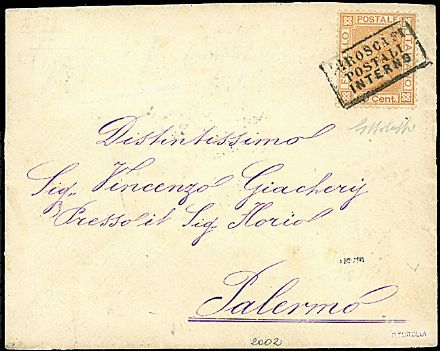 POSTALE
PIROSCAFI
POSTALI
INTERNO
Cent.
Distintissimo
Sig. Vincenzo Giachery
Presso il Sig. Florio
Palermo
2002